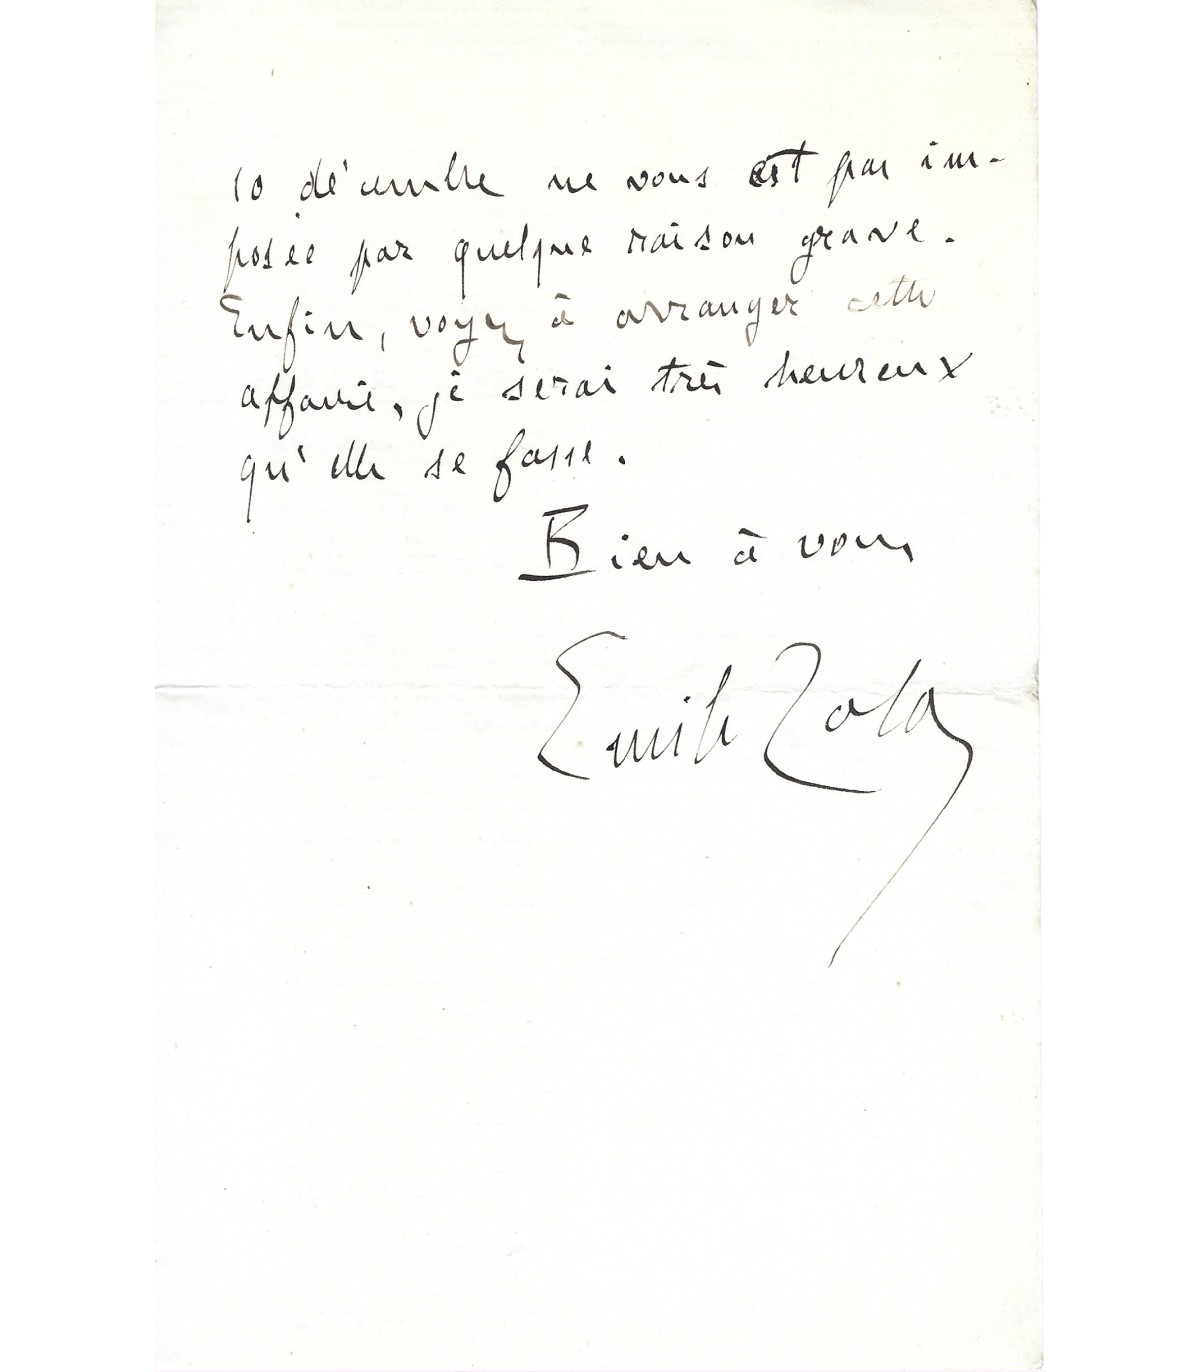 10 décembre ne vous est pas im-
posée par quelque raison grave.
Enfin, voyez à arranger cette
affaire, je serai très heureux
qu'elle se fasse.
Bien à vous
Emile Zola